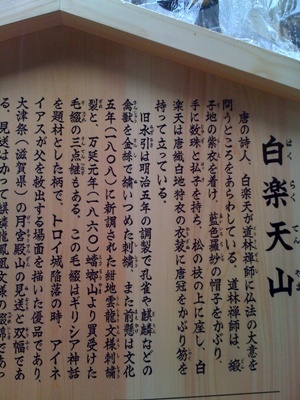 白楽天山
はくらくてんやま
唐の詩人、白楽天が道林禅師に仏法の大意を
問うところをあらわしている。道林禅師は、緞
子地の紫衣を着け、藍色羅紗の帽子をかぶり、
手に数珠と払子を持ち、松の枝の上に座し、白
楽天は唐織白地狩衣の衣装に唐冠をかぶり笏を
持って立っている。
旧水引は明治五年の調製で孔雀や麒麟などの
禽獣を金糸で繍いつめた刺繍、また前懸は文化
五年(一八〇八)に新調された紺地雲龍文様刺繍
裂と、万延元年(一八六〇)蟷螂山より買受けた
毛綴の三点継もある。この毛綴はギリシア神話
を題材とした柄で、トロイ城陥落の時、アイネ
イアスが父を救出する場面を描いた優品であり、
大津祭(滋賀県)の月宮殿山の見送と双幅であ
る。見送はかつて麒麟龍鳳凰文様の
であっ